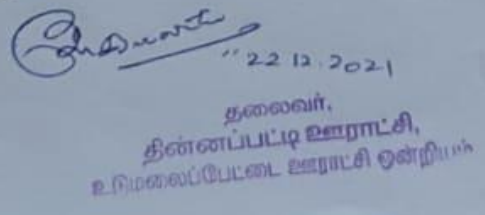 22.12.2021
தலைவர்,
தின்னப்பட்டி ஊராட்சி,
உடுமலைப்பேட்டை ஊராட்சி ஒன்றியம்